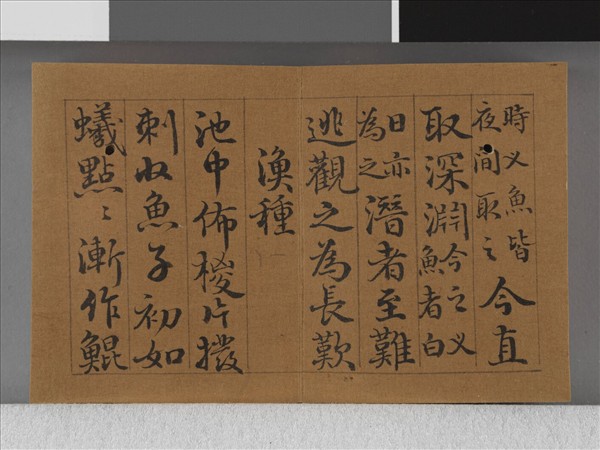 時叉魚皆
夜間取之
今直
取深淵
今之叉
魚者白
日亦
為之
潛者至難
逃觀之為長歎
漁種
池中佈椶片撥
刺收魚子初如
蟻點〻漸作鯤